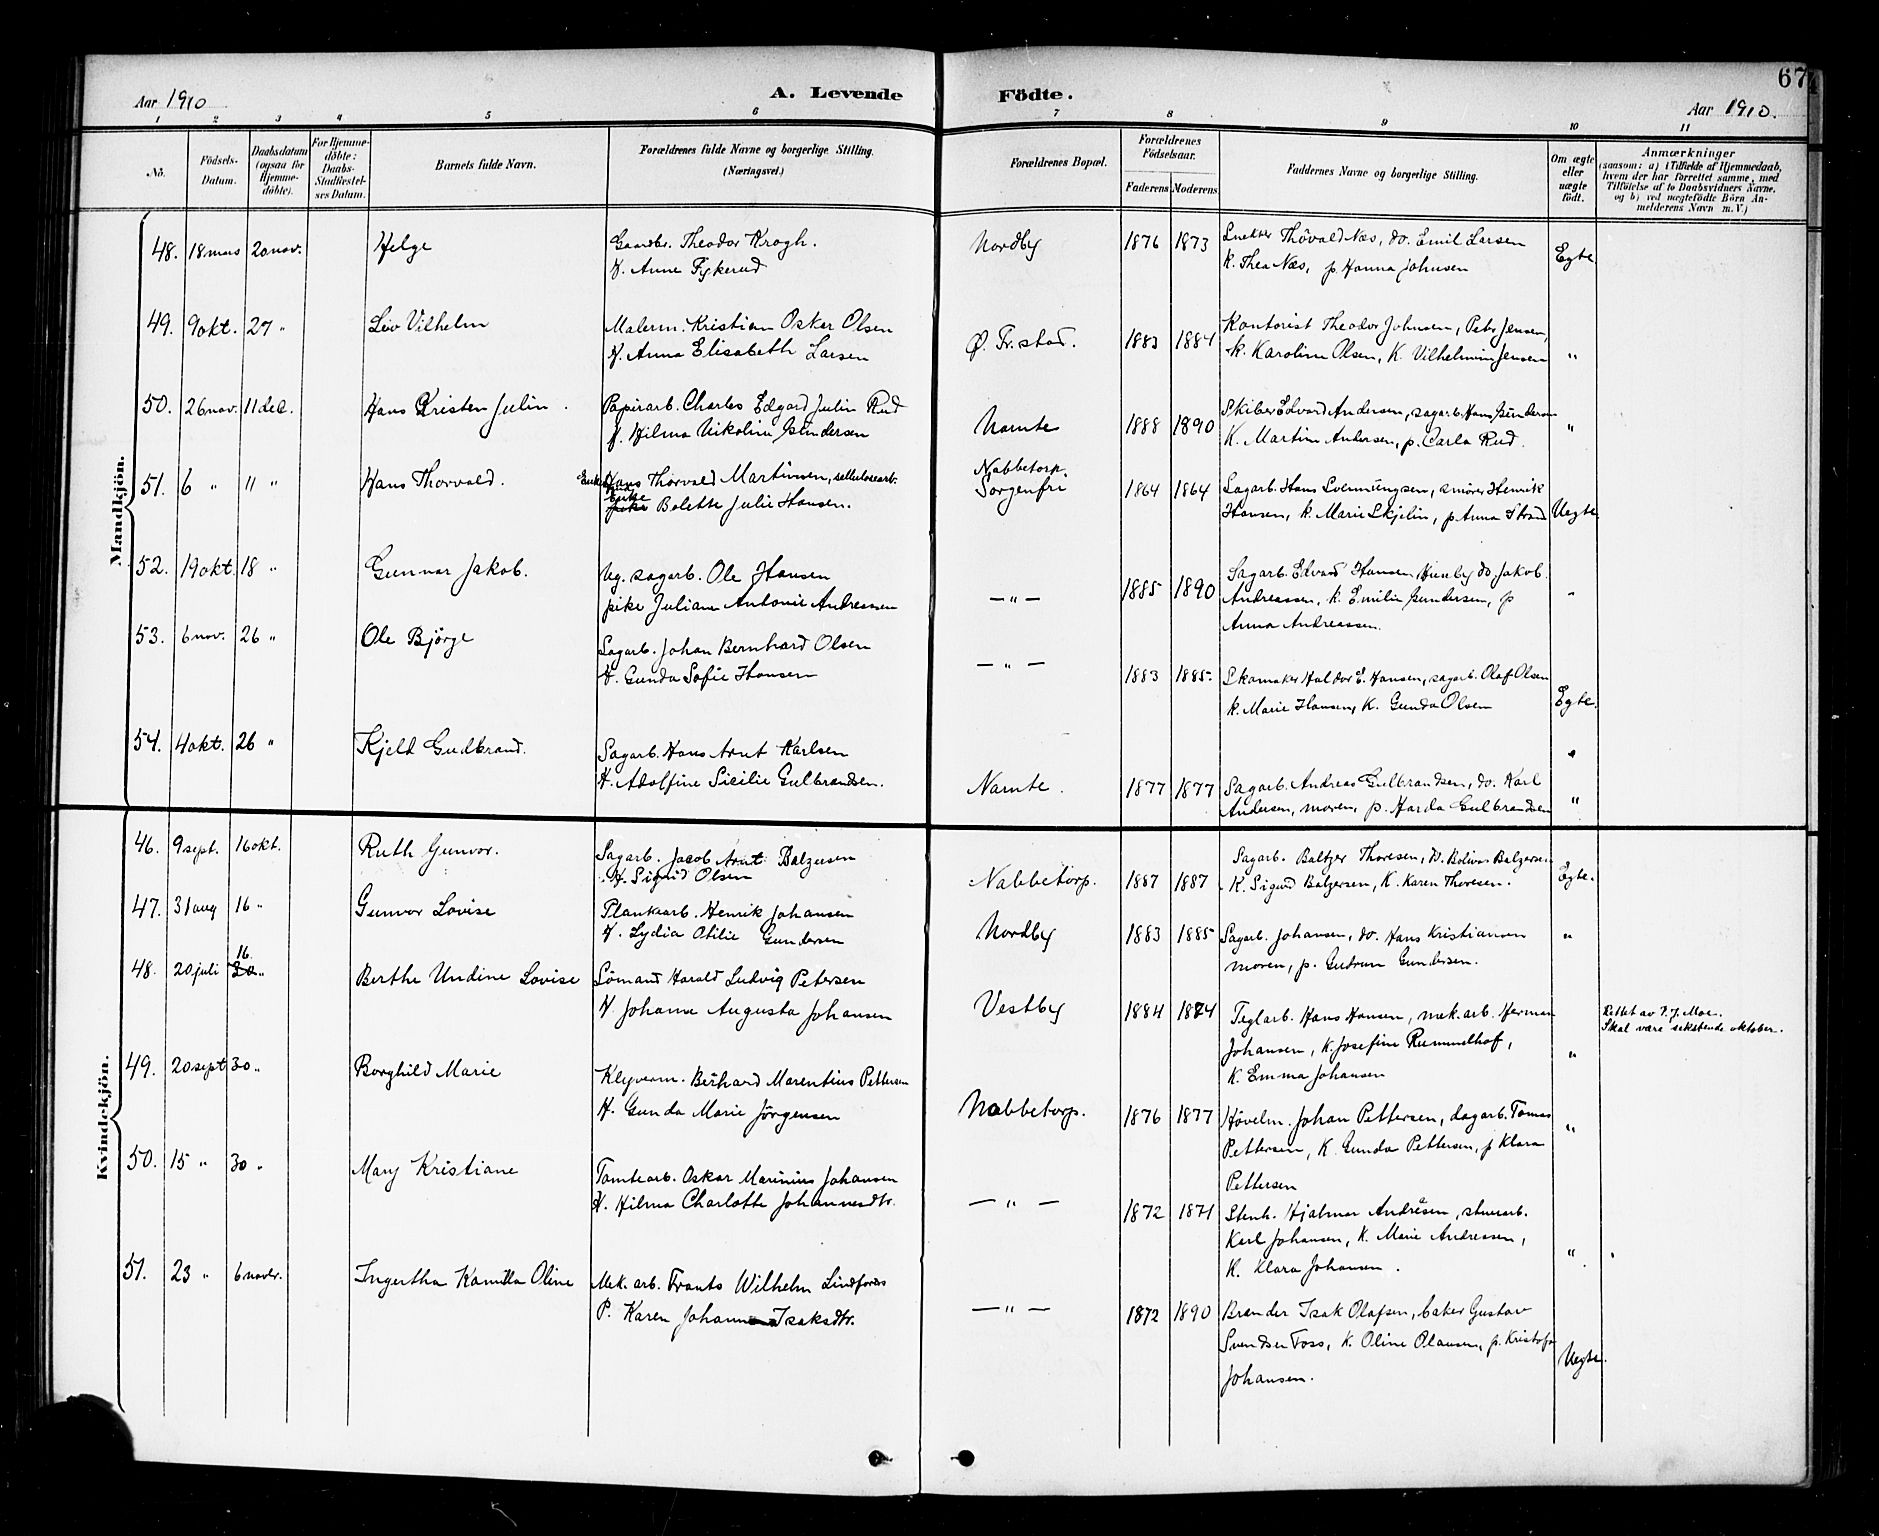 67
Aar 1910
A. Levende
Födte.
Aar 1910.
1 2 3 4 5 6 7 8 9 10 11
No.
Födsels-Datum.
Daabsdatum (ogsaa for Hjemme-döbte).
For Hjemme-döbte: Daabs-Stadfæstel-ses Datum.
Barnets fulde Navn.
Forældrenes fulde Navne og borgerlige Stilling. (Næringsvei.)
Forældrenes Bopæl.
Forældrenes Födselsaar.
Faderens Moderens
Faddernes Navne og borgerlige Stilling.
Om ægte eller uægte födt.
Anmærkninger
(saasom: a) i Tilfælde af Hjemmedaab,
hvem der har forrettet samme, med
Tilföielse af to Daabsvidners Navne,
og b) ved uægtefödte Börn An-
melderens Navn m. V.)
Mandkjön.
48. 18 mars 20 nov. Helge Gaardbr. Theodor Krogh. Nordby 1876 1873 Snekker Thorvald Næs, do. Emil Larsen Egte
H. Anne Fykerud K. Thea Næs, p. Hanna Johnsen
49. 9 okt. 27 " Leiv Vilhelm Malerm. Kristian Oskar Olsen Ø. Fr.stad. 1883 1884 Kontorist Theodor Johnsen, Peter Jensen, "
H. Anna Elisabeth Larsen K. Karoline Olsen, K. Vilhelmine Jensen
50. 26 nov. 11 dec. Hans Kristen Julin. Papirarb. Charles Edgard Julin Rud Narnte 1888 1890 Skiber Edvard Andersen, sagarb. Hans Gundersen "
f. Hilma Nikoline Gundersen K. Martine Andersen, p. Carla Rud.
51. 6 " 11 " Hans Thorvald. Enkem. Hans Thorvald Martinsen, cellulosearb. Nabbetorp. Sorgenfri 1864 1864 Sagarb. Hans Svenningsen, smører Henrik Uegte
Enke pike Bolette Julie Hansen. Hansen, K. Marie Skjelin, p Anna Strand
52. 19 okt. 18 " Gunnar Jakob. Ug. sagarb. Ole Hansen — " — 1885 1890 Sagarb. Edvard Hansen Hunby do. Jakob "
pike Juliane Antonie Andreassen Andreassen, K. Emilie Gundersen, p
Anna Andreassen.
53. 6 nov. 26 " Ole Bjørge Sagarb. Johan Bernhard Olsen — " — 1883 1885. Skomaker Haldor E. Hansen, sagarb. Olaf Olsen Egte.
H. Gunda Sofie Hansen K. Marie Hansen, K. Gunda Olsen
54. 4 okt. 26 " Kjeld Gudbrand. Sagarb. Hans Arnt Karlsen Narnte. 1877 1877 Sagarb. Andreas Gulbrandsen, do. Karl "
H. Adolfine Sicilie Gulbrandsen. Andersen, moren, p. Harda Gulbrandsen
Kvindekjön.
46. 9 sept. 16 okt. Ruth Gunvor. Sagarb. Jacob Arnt Balzersen Nabbetorp. 1887 1887 Sagarb. Baltzer Thoresen, do. Bolivar Balzersen Egte.
H. Sigrid Olsen K. Sigrid Balzersen, K. Karen Thoresen.
47. 31 aug 16 " Gunvor Lovise Plankearb. Henrik Johansen Nordby 1883 1885 Sagarb. Johansen, do. Hans Kristiansen "
H. Lydia Otilie Gundersen moren, p. Gudrun Gundersen.
48. 20 juli 16. 30 " Berthe Undine Lovise Sömand Harald Ludvig Petersen Vestby 1884 1884 Teglarb. Hans Hansen, mek. arb. Herman " Rettet av
H. Johanne Augusta Johansen Johansen, K. Josefine Rummelhof, Skal være sekstende oktober.
K. Emma Johansen
49. 20 sept 30 " Borghild Marie Kløverm. Berhard Marentius Pettersen Nabbetorp. 1876 1877 Høvelm. Johan Pettersen, dagarb. Tomas "
H. Gunda Marie Jørgensen Pettersen, K. Gunda Pettersen, p Klara
Pettersen
50. 15 " 30 " Mary Kristiane Tomtearb. Oskar Marinius Johansen — " — 1872 1871 Stenh. Hjalmar Andresen, stuerarb. "
H. Hilma Charlotte Johannesdtr. Karl Johansen, K. Marie Andreasen,
K. Klara Johansen.
51. 23 " 6 novbr. Ingertha Kamilla Oline Mek. arb. Frants Wilhelm Lindforss — " — 1872 1890 Brænder Isak Olafsen, baker Gustav Uegte.
P. Karen Johanne Isaksdtr. Svendsen Foss, K. Oline Olausen, p. Kristofa
Johansen.